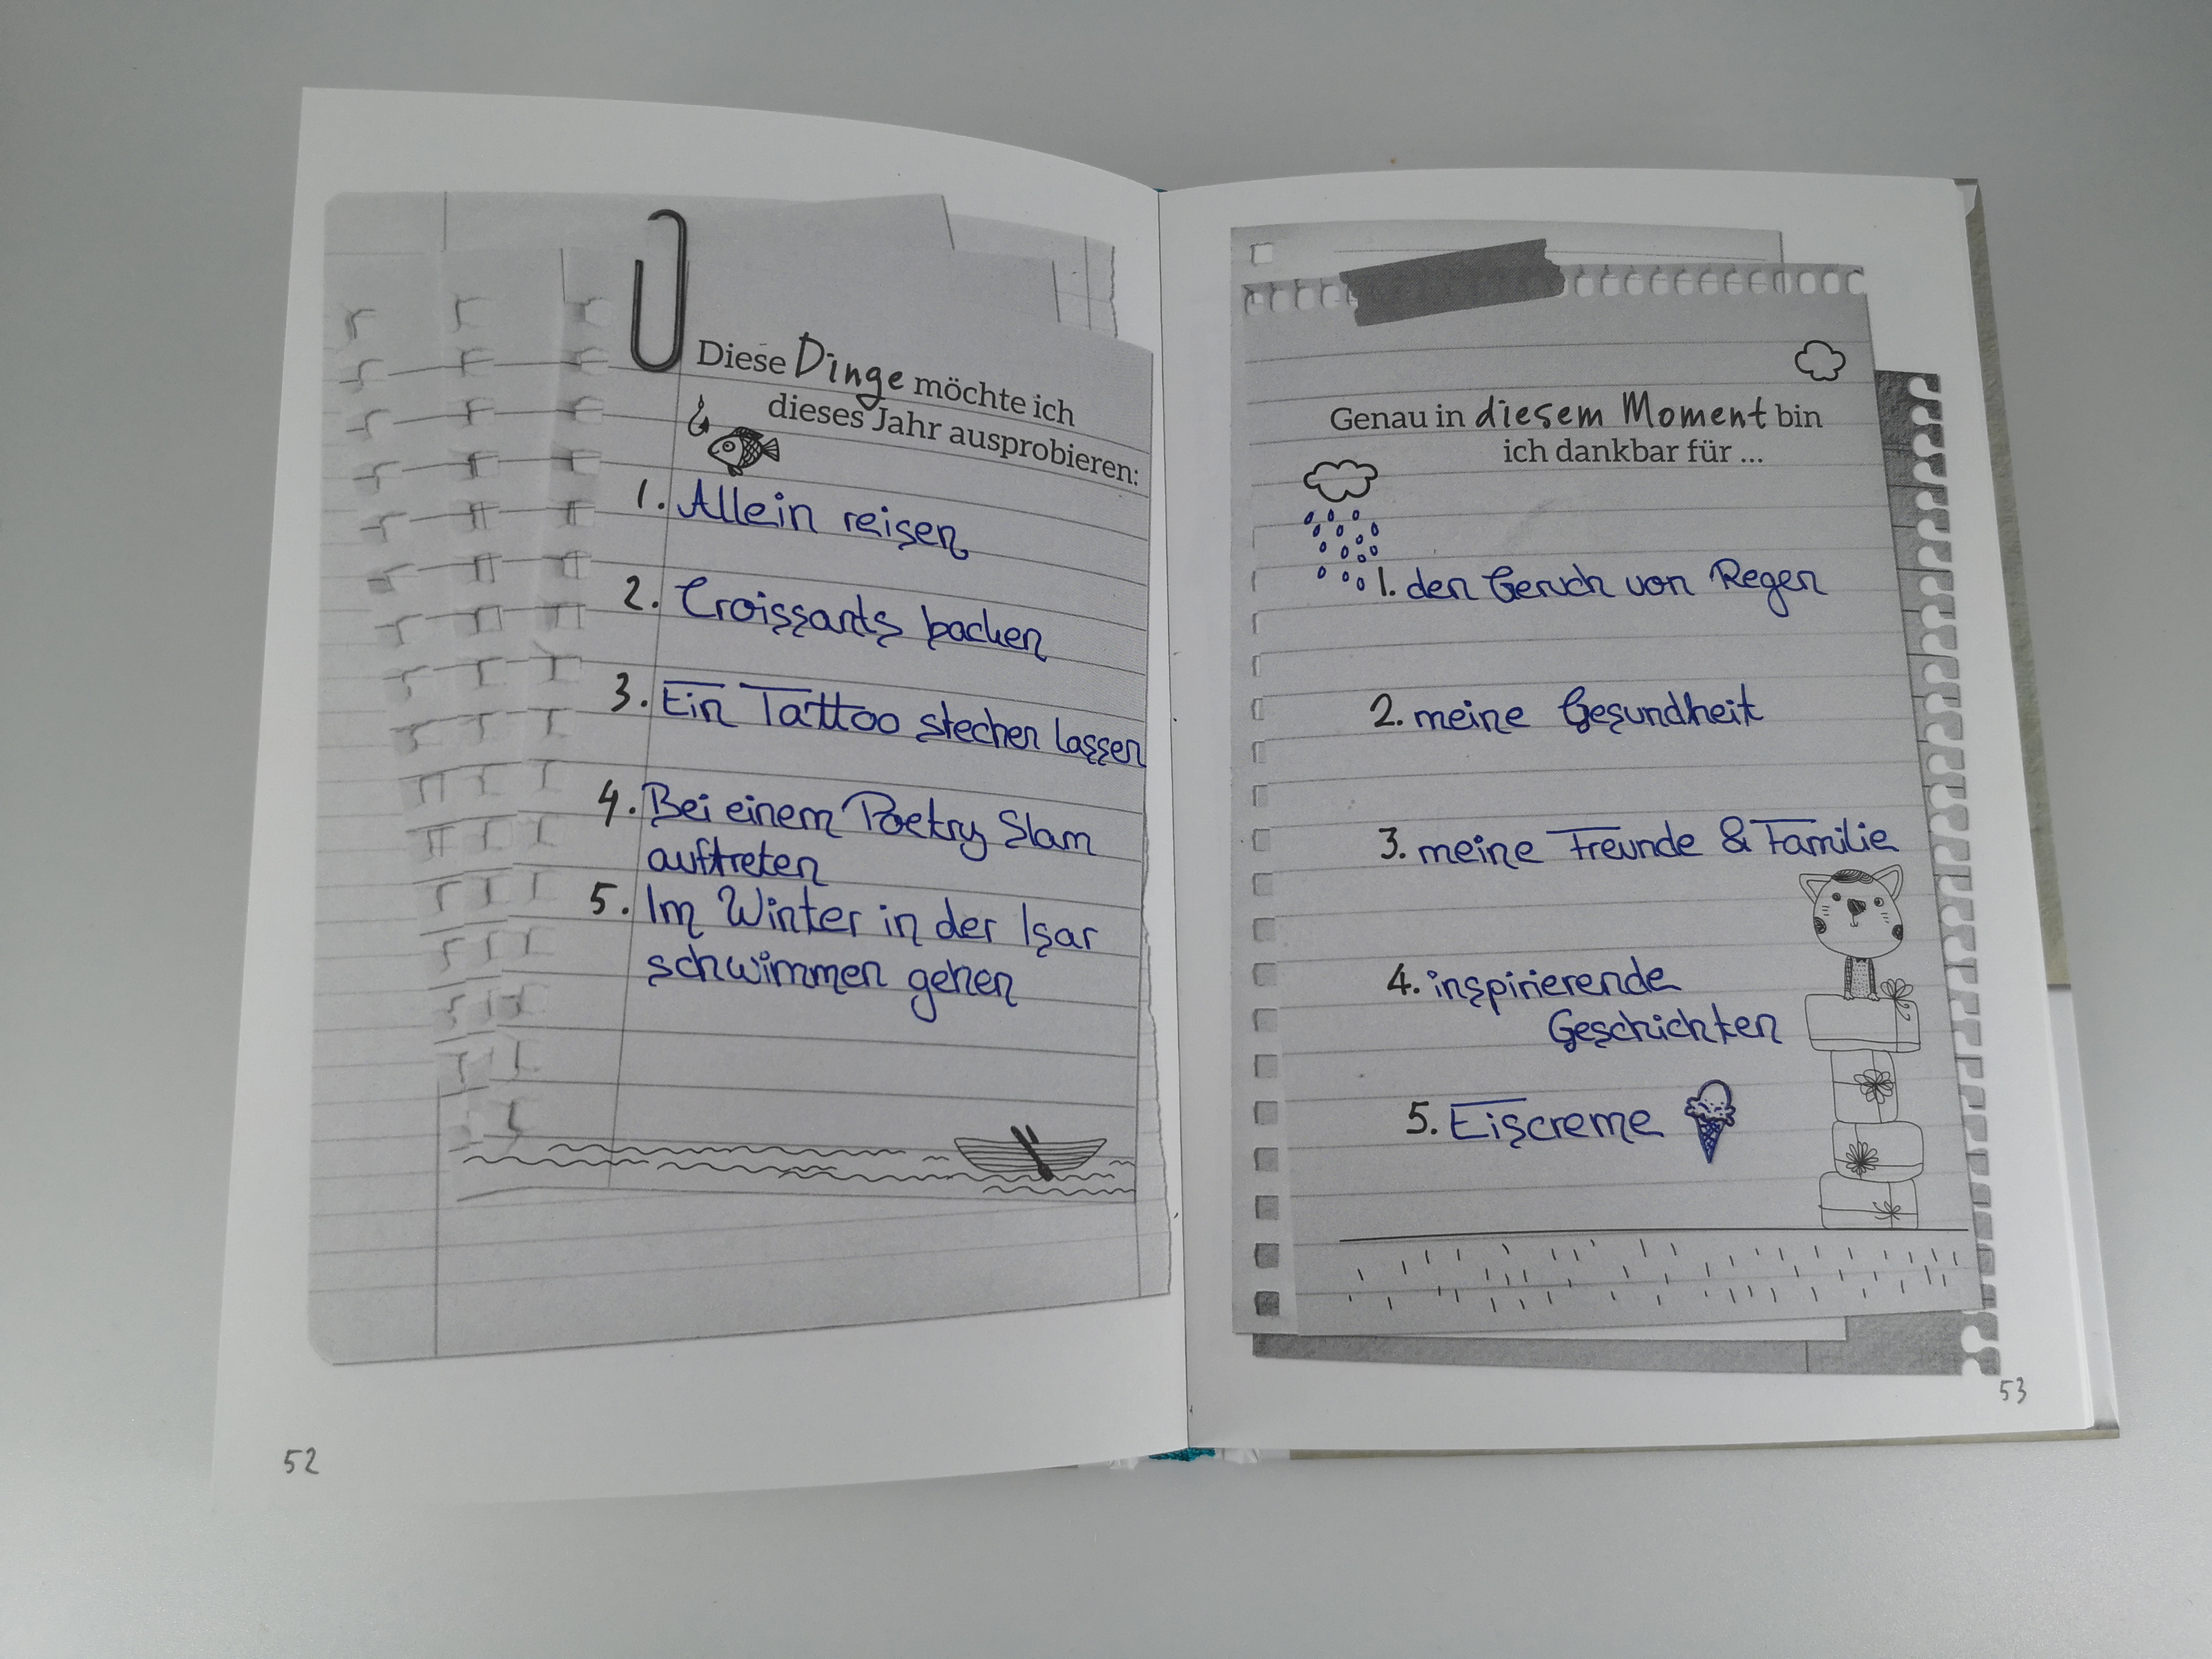 Diese Dinge möchte ich
dieses Jahr ausprobieren:
1. Allein reisen
2. Croissants backen
3. Ein Tattoo stechen lassen
4. Bei einem Poetry Slam
auftreten
5. Im Winter in der Isar
schwimmen gehen
52
Genau in diesem Moment bin
ich dankbar für ...
1. den Geruch von Regen
2. meine Gesundheit
3. meine Freunde & Familie
4. inspirierende
Geschichten
5. Eiscreme
53